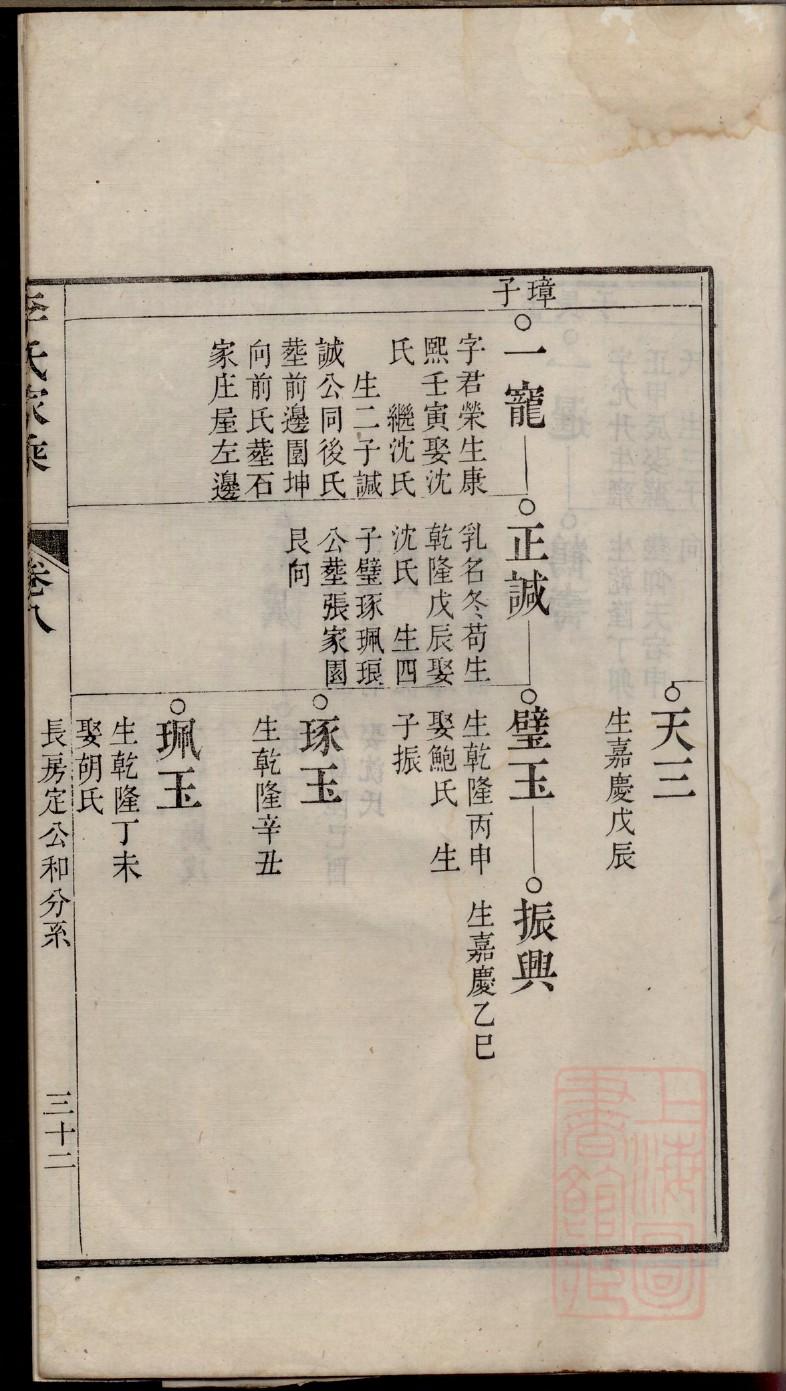 璋子
一寵
字君榮生康
熙壬寅娶沈
氏　繼沈氏
生二子諴
誠公同後氏
塟前邊圍坤
向前氏塟石
家庄屋左邊
正諴
乳名冬苟生
乾隆戊辰娶
沈氏　生四
子璧琢珮琅
公塟張家園
艮向
天三
生嘉慶戊辰
璧玉
生乾隆丙申
娶鮑氏　生
子振
振興
生嘉慶乙巳
琢玉
生乾隆辛丑
珮玉
生乾隆丁未
娶胡氏
李氏家乘
卷八
長房定公和分系
三十二
上海圖書館藏